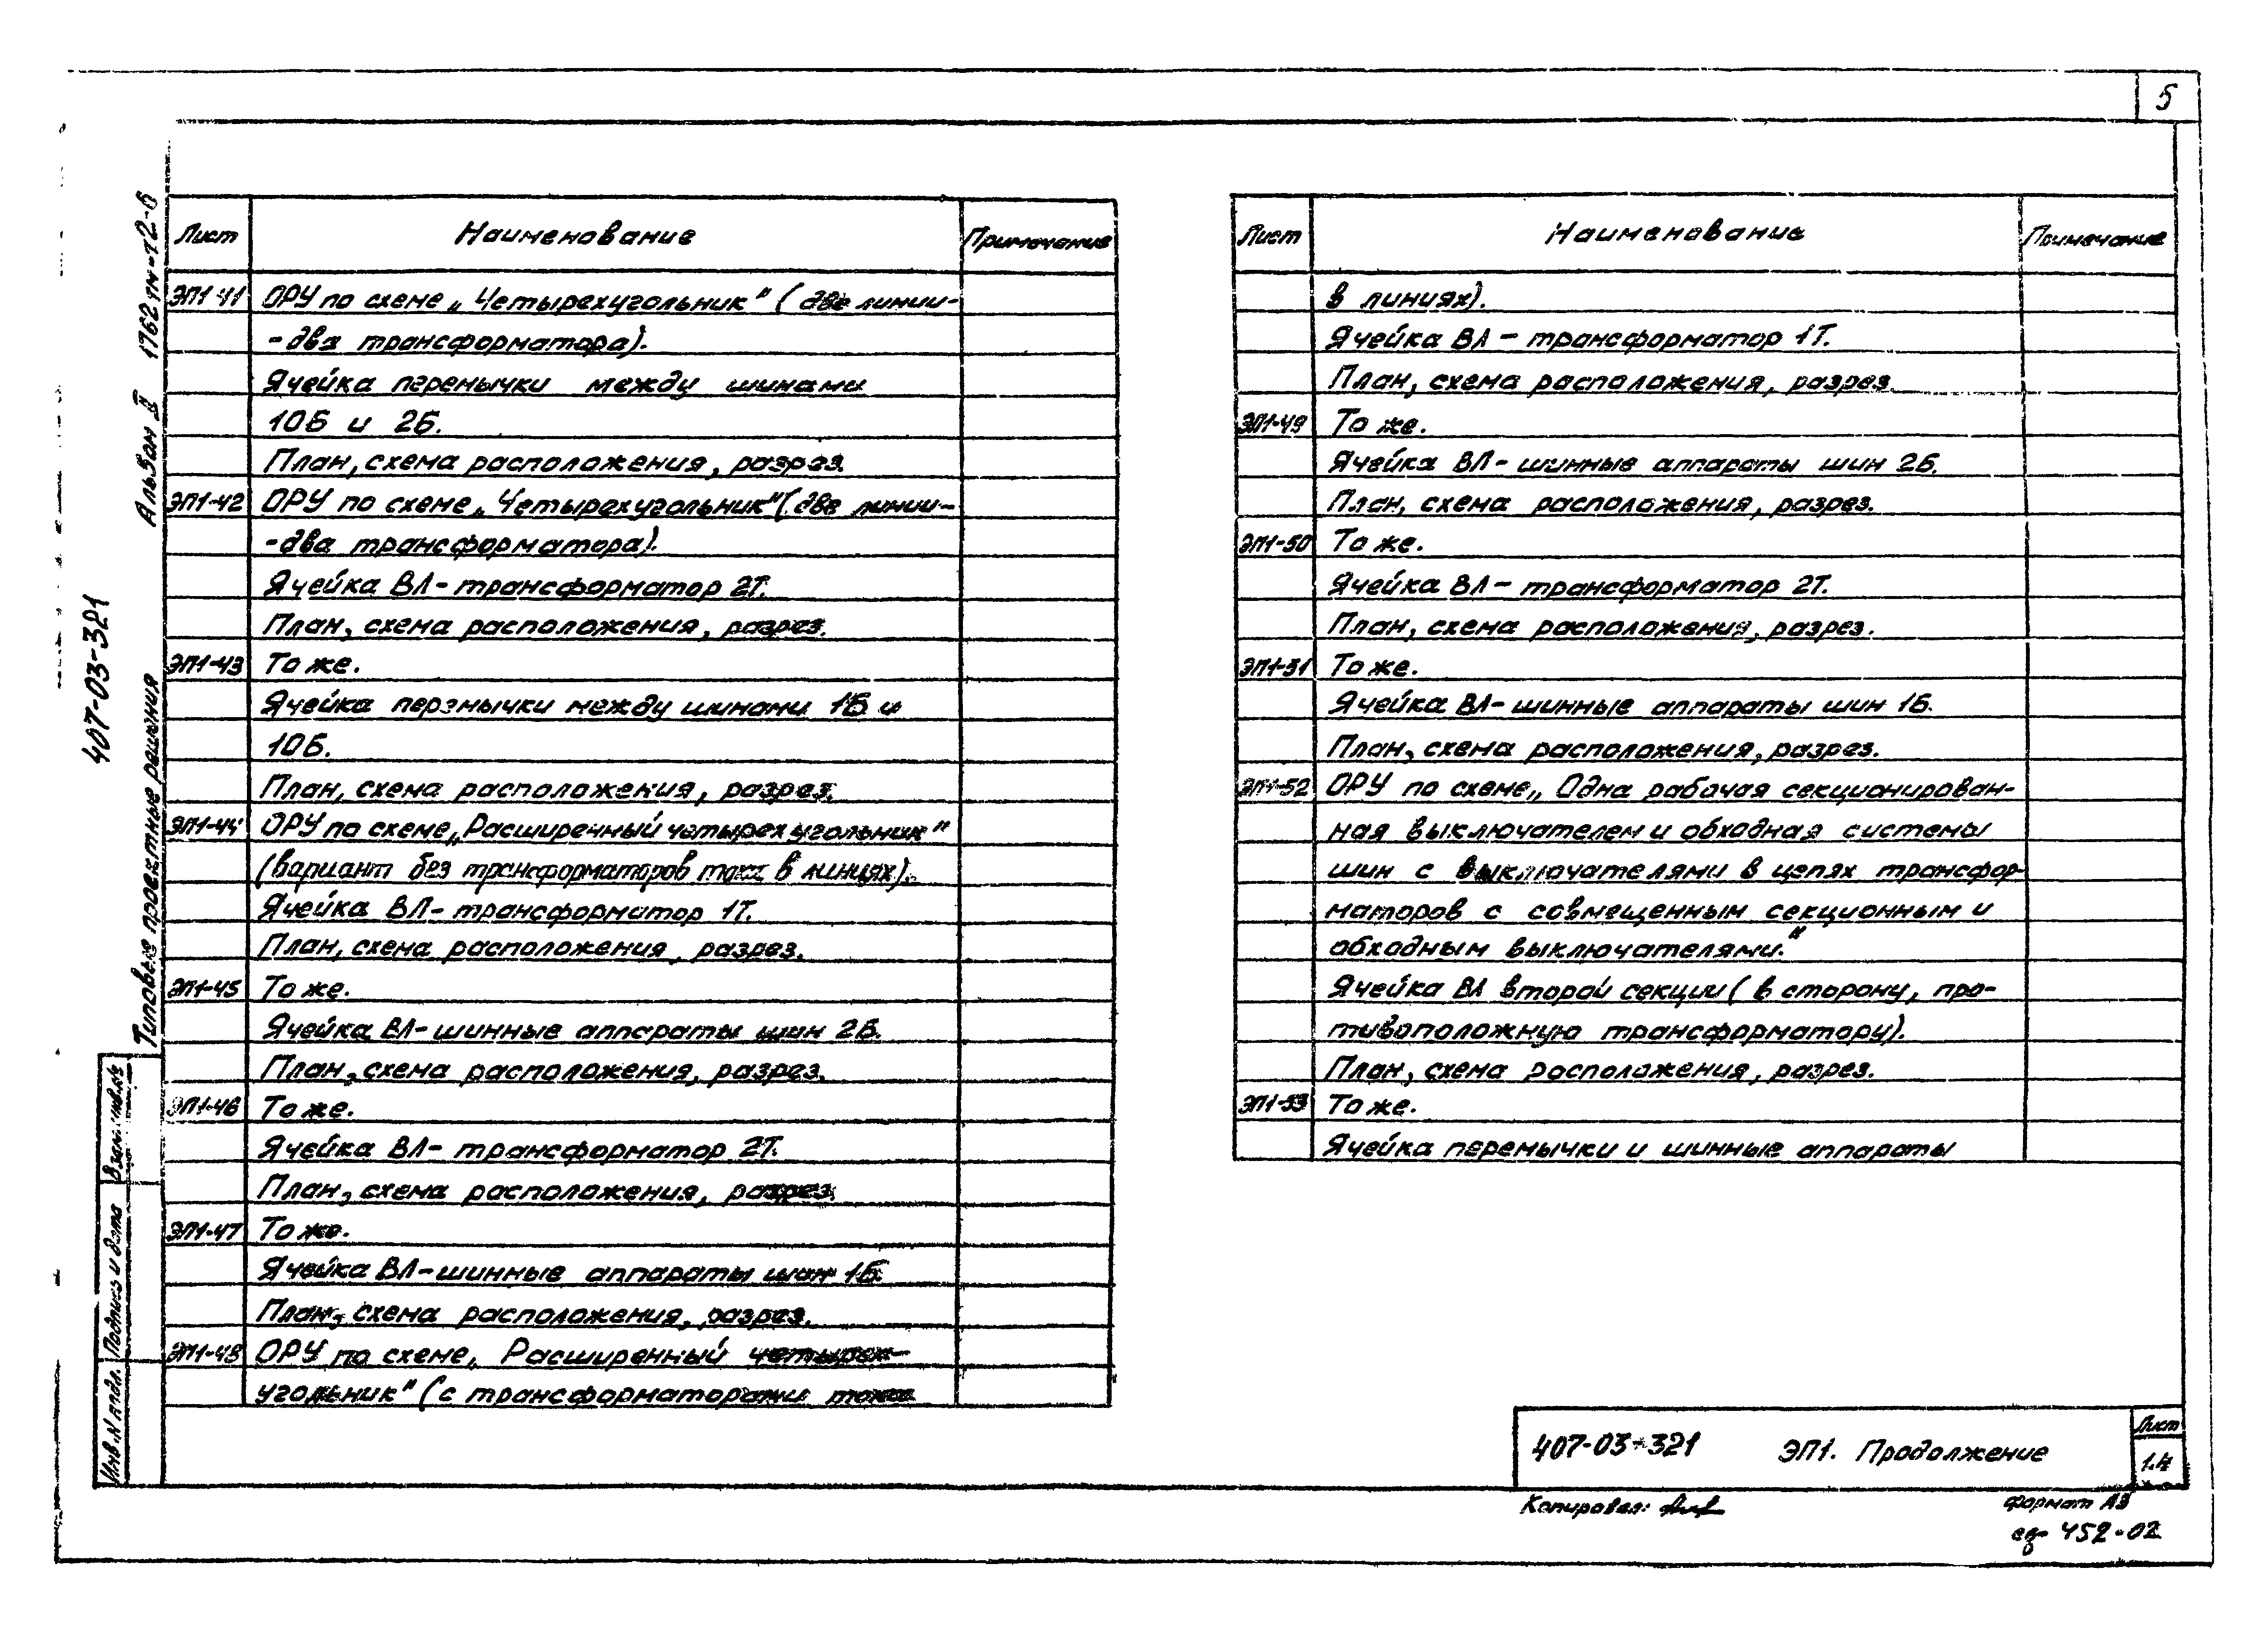 5
Лист Наименование Примечание
ЭП1-41 ОРУ по схеме „Четырехугольник" (две линии-
-два трансформатора).
Ячейка перемычки между шинами
10Б и 2Б.
План, схема расположения, разрез.
ЭП1-42 ОРУ по схеме „Четырехугольник" (две линии-
-два трансформатора).
Ячейка ВЛ-трансформатор 2Т.
План, схема расположения, разрез.
ЭП1-43 То же.
Ячейка перемычки между шинами 1Б и
10Б.
План, схема расположения, разрез.
ЭП1-44 ОРУ по схеме „Расширенный четырехугольник"
(вариант без трансформаторов тока в линиях).
Ячейка ВЛ-трансформатор 1Т.
План, схема расположения, разрез.
ЭП1-45 То же.
Ячейка ВЛ-шинные аппараты шин 2Б.
План, схема расположения, разрез.
ЭП1-46 То же.
Ячейка ВЛ-трансформатор 2Т.
План, схема расположения, разрез.
ЭП1-47 То же.
Ячейка ВЛ-шинные аппараты шин 1Б.
План, схема расположения, разрез.
ЭП1-48 ОРУ по схеме „Расширенный четырех-
угольник" (с трансформаторами тока
Лист Наименование Примечание
в линиях).
Ячейка ВЛ-трансформатор 1Т.
План, схема расположения, разрез.
ЭП1-49 То же.
Ячейка ВЛ-шинные аппараты шин 2Б.
План, схема расположения, разрез.
ЭП1-50 То же.
Ячейка ВЛ-трансформатор 2Т.
План, схема расположения, разрез.
ЭП1-51 То же.
Ячейка ВЛ-шинные аппараты шин 1Б.
План, схема расположения, разрез.
ЭП1-52 ОРУ по схеме „Одна рабочая секционирован-
ная выключателем и обходная системы
шин с выключателями в цепях трансфор-
маторов с совмещенным секционным и
обходным выключателями."
Ячейка ВЛ второй секции (в сторону, про-
тивоположную трансформатору).
План, схема расположения, разрез.
ЭП1-53 То же.
Ячейка перемычки и шинные аппараты
407-03-321 ЭП1. Продолжение
Лист
1.4
Копировал:
Формат А3
452-02
407-03-321
Типовые проектные решения Альбом II 1762тм-т2-6
Взам. инв. №
Подпись и дата
Инв. N подл.